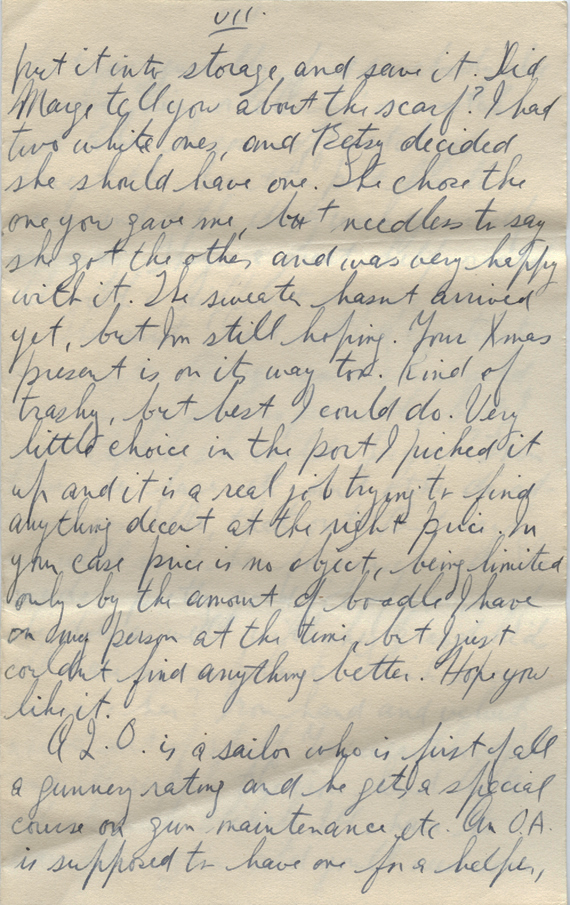 VII.
put it into storage and save it. Did
Marge tell you about the scarf? I had
two white ones, and Betsy decided
she should have one. She chose the
one you gave me, but needless to say
she got the other and was very happy
with it. The sweater hasnt arrived
yet, but Im still hoping. Your Xmas
present is on its way too. Kind of
trashy, but best I could do. Very
little choice in the port I picked it
up and it is a real job trying to find
anything decent at the right price. In
your case price is no object, being limited
only by the amount of boodle I have
on my person at the time, but I just
couldnt find anything better. Hope you
like it.
A Q.O. is a sailor who is first of all
a gunnery rating and he gets a special
course on gun maintenance etc. An O.A.
is supposed to have one for a helper,